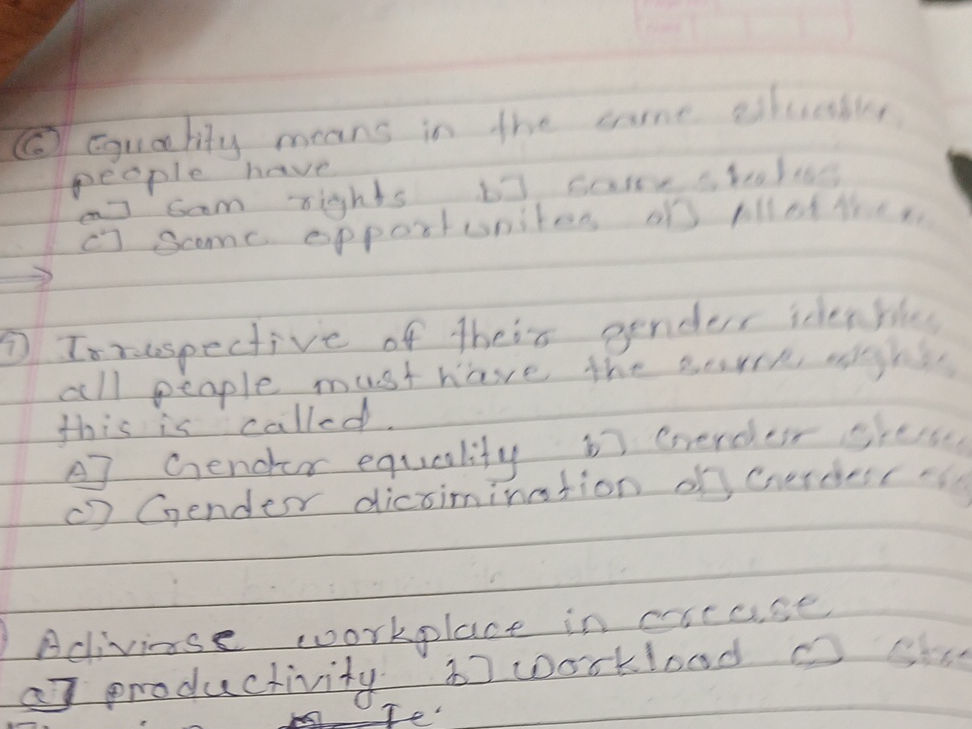 6) Equality means in the same
people have
a] Sam rights b] same status
c] Same opportunites d] All of them
7) Irruspective of their gender identities
all peaple must have the same rights
this is called.
A] Gender equality b] Gender
c] Gender dicrimination d] Gender
Adivirse workplace in crecuse
a] productivity b] workload c]